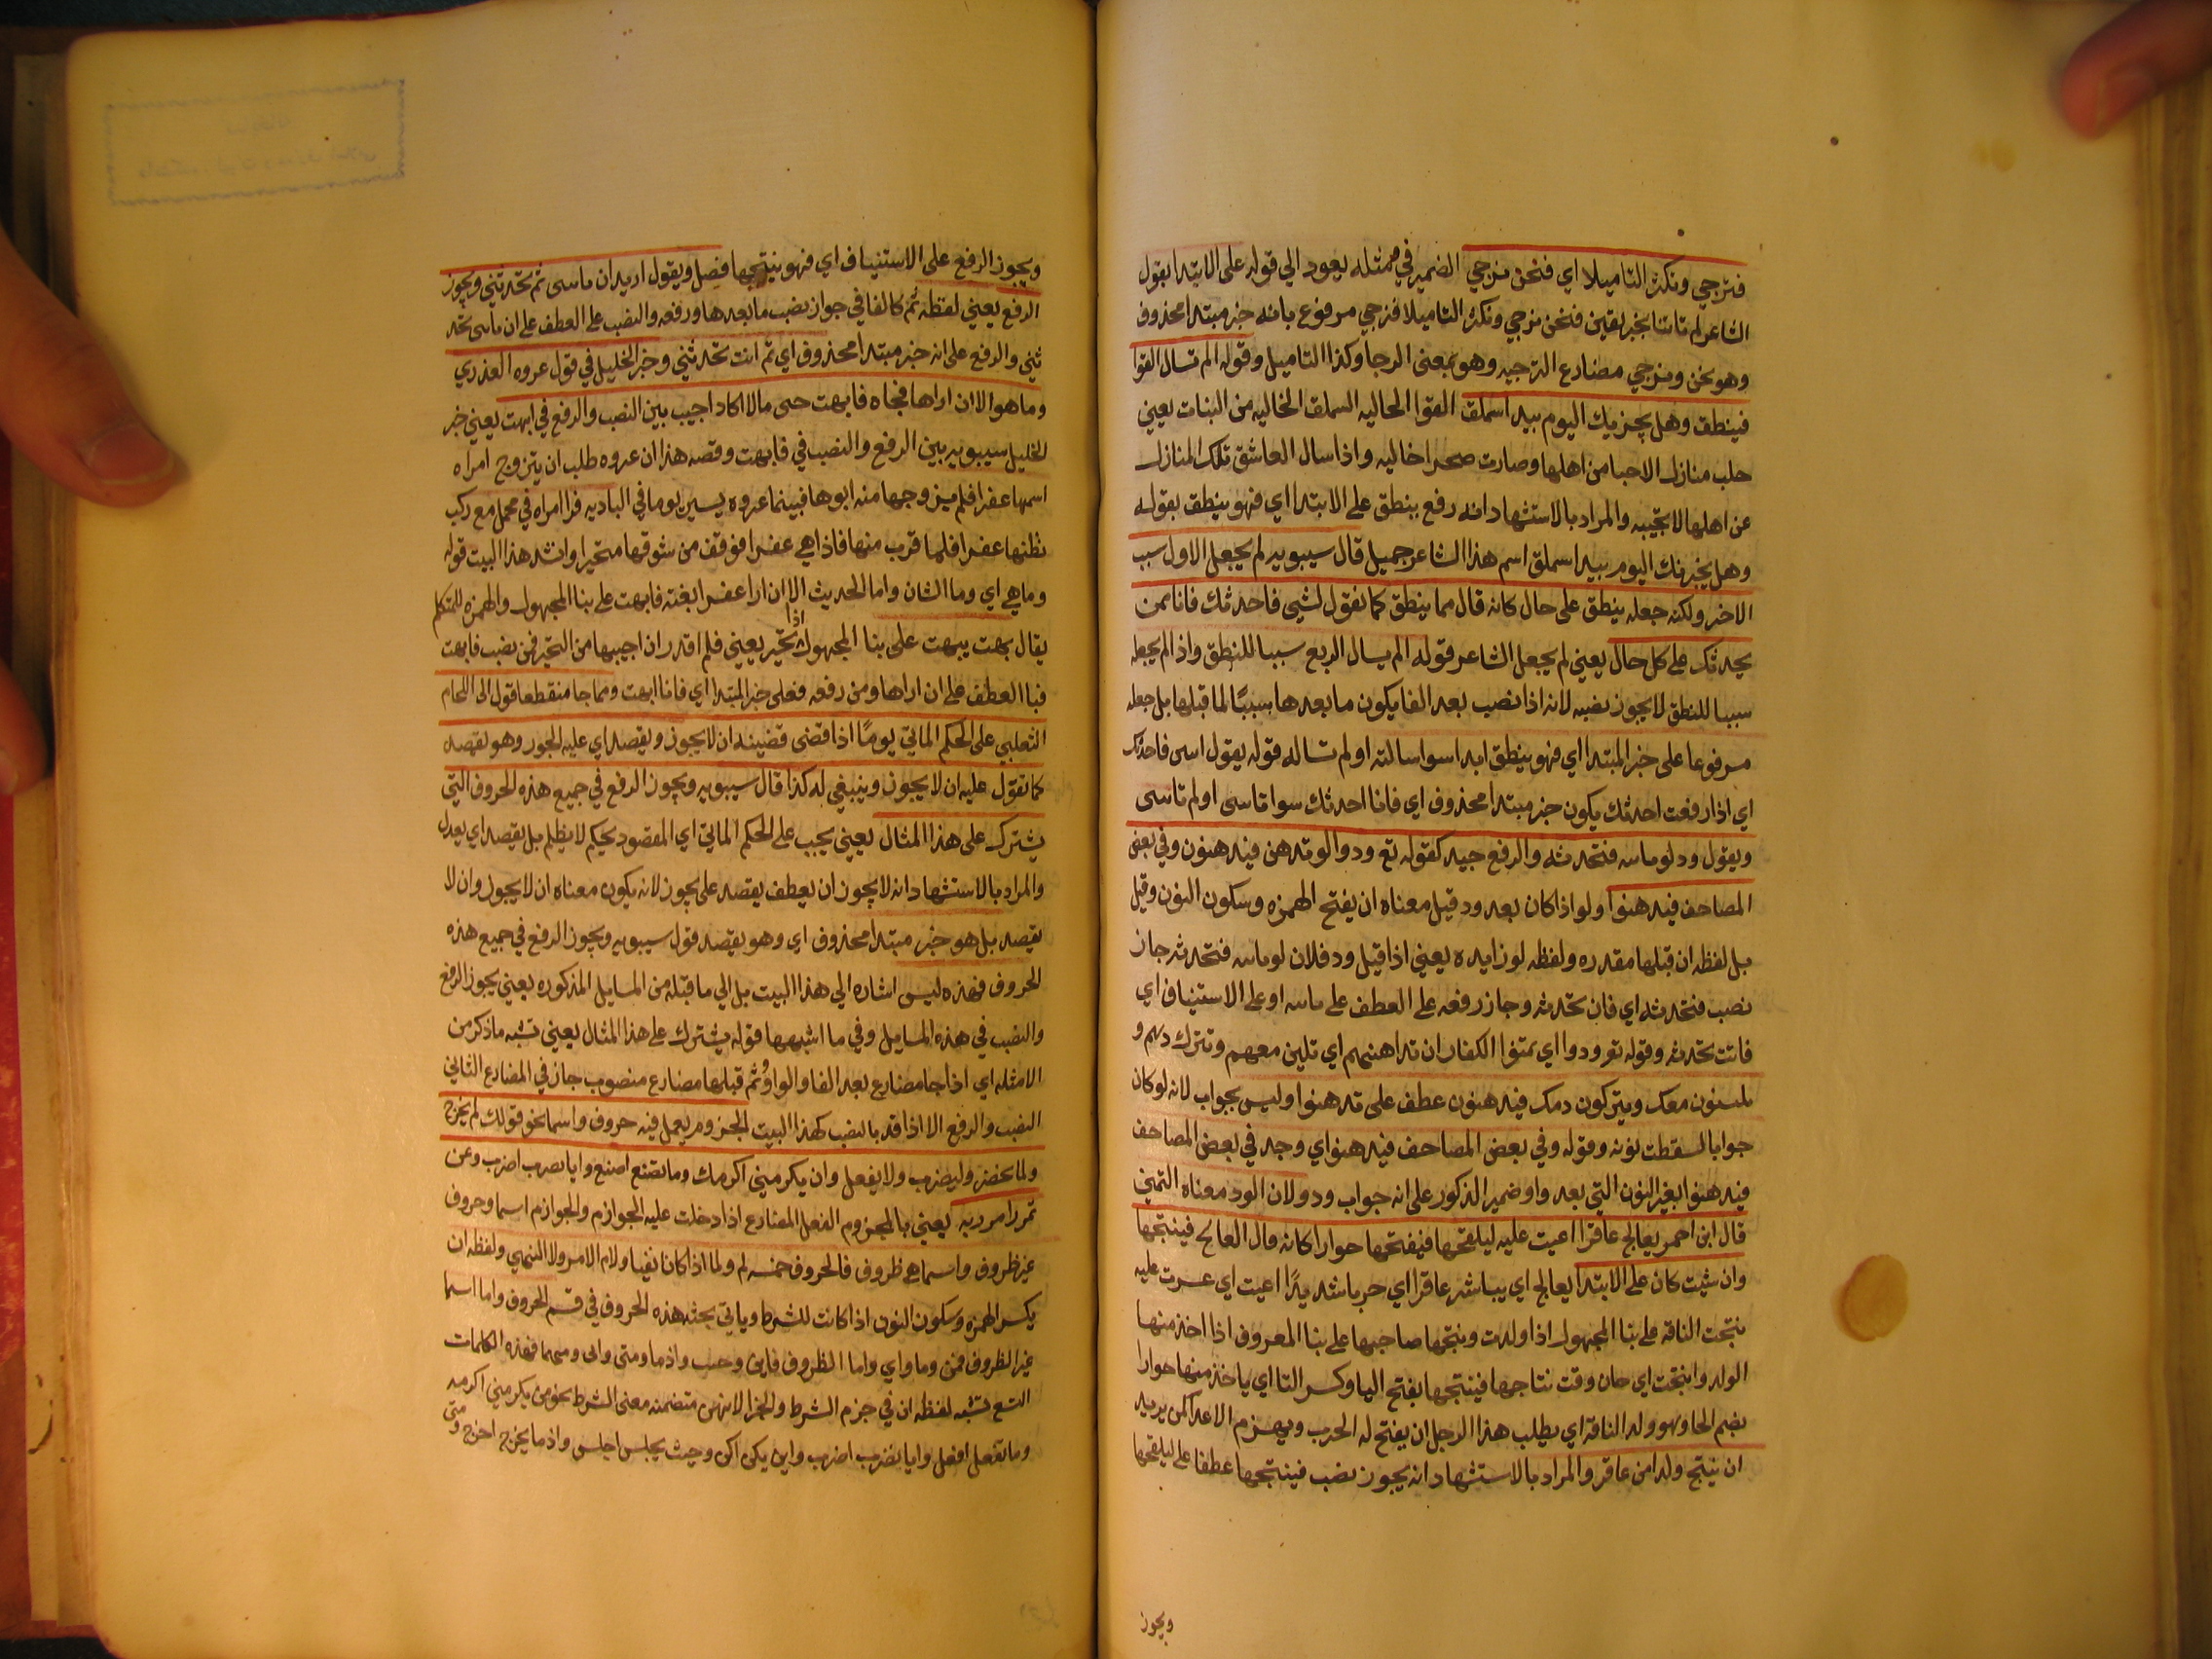 فنرجي ونكثر التاميلا اي فنحن نرجي الضمير في مثله يعود الي قوله علي الابتدا بقول
الشاعر لم تاتنا بخبر يقين فنحن نرجي ونكثر التاميلا فنرجي مرفوع بانه خبر مبتدا محذوف
وهو نحن ونرجي مضارع الترجيه وهو بمعني الرجا وكذا التاميل وقوله الم تسال القوا
فينطق وهل يخبرنك اليوم بيدا سملق القوا الخاليه السملق الخاليه من النبات يعني
منازل الاحبا من اهلها وصارت صحرا خاليه واذا سال العاشق تلك المنازل
عن اهلها لا تجيبه والمراد بالاستشهاد انه رفع ينطق علي الابتدا اي فهو ينطق بقوله
وهل يخبرنك اليوم بيدا سملق اسم هذا الشاعر جميل قال سيبويه لم يجعل الاول سبب
الاخر ولكنه جعله ينطق علي حال كانه قال مما ينطق كما تقول لشي فاحدثك فانا ممن
يحدثك علي كل حال يعني لم يجعل الشاعر قوله الم يسال الربع سببا للنطق واذا لم يجعله
سببا للنطق لا يجوز نصبه لانه اذا نصب بعد الفا يكون ما بعدها سببًا لما قبلها بل جعله
مرفوعا علي خبر المبتدا اي فهو ينطق ابدا سوا سالته او لم تساله قوله يقول اسى فاحدثك
اي اذا رفعت احدثك يكون خبر مبتدا محذوف اي فانا احدثك سوا تاسى او لم تاسى
ويقول ود لو ماسه فتحدثه والرفع جيد كقوله تع ودوا لو تدهن فيدهنون وفي بعض
المصاحف فيدهنوا ولو اذا كان بعد ود قيل معناه ان بفتح الهمزه وسكون النون وقيل
بل لفظه ان قبلها مقدره ولفظه لو زايده يعني اذا قيل ود فلان لو ماسه فتحدثه جاز
نصب فتحدثه اي فان تحدثه وجاز رفعه علي العطف علي ماسه او علي الاستيناف اي
فانت تحدثه وقوله تع ودوا اي تمنوا الكفار ان تداهنهم اي تلين معهم وتترك دمهم و
يلينون معك ويتركون دمك فيدهنون عطف علي تدهنوا وليس بجواب لانه لو كان
جوابا لسقطت نونه وقوله وفي بعض المصاحف فيدهنوا اي وجد في بعض المصاحف
فيدهنوا بغير النون التي بعد واو ضمير الذكور علي انه جواب ودو لان الود معناه التمني
قال ابن احمر يعالج عاقرا اعيت عليه ليلقحها فينتجها حوارا كانه قال العالج فينتجها
وان شيت كان علي الابتدا يعالج اي يباشر عاقرا اي حربا شديدًا اعيت اي عسرت عليه
نتجت الناقه علي بنا المجهول اذا ولدت ونتجها صاحبها علي بنا المعروف اذا اخذ منها
الولد وانتجت اي حان وقت نتاجها فينتجها بفتح اليا وكسر التا اي ياخذ منها حوارا
بضم الحا وهو ولد الناقه اي يطلب هذا الرجل ان يفتح له الحرب ويهزم الاعدا كمن يريد
ان ينتج ولدا من عاقر والمراد بالاستشهاد انه يجوز نصب فينتجها عطفا علي ليلقحها
ويجوز
ويجوز الرفع علي الاستيناف اي فهو ينتجها فصل ويقول اريد ان ماسى ثم تحدثني ويجوز
الرفع يعني لفظه ثم كالفا في جواز نصب ما بعدها ورفعه والنصب علي العطف علي ان ماسى تحد
ثني والرفع علي انه خبر مبتدا محذوف اي ثم انت تحدثني وخبر الخليل في قول عروه العذري
وما هو الا ان اراها فجاه فابهت حتى ما لا اكاد اجيب بين النصب والرفع في ابهت يعني خبر
الخليل سيبويه بين الرفع والنصب في فابهت وقصه هذا ان عروه طلب ان يتزوج امراه
اسمها عفرا فلم يزوجها منه ابوها فبينما عروه يسير يوما في الباديه فرا امراه في محمل مع ركب
فظنها عفرا فلما قرب منها فاذا هي عفرا فوقف من شوقها متحيرا وانشد هذا البيت قوله
وما هي اي وما الشان واما الحديث الا ان ارا عفرا بغته فابهت علي بنا المجهول والهمزه للمتكلم
يقال بهت يبهت علي بنا المجهول اذا تحير يعني فلم اقدر ان اجيبها من التحير فمن نصب فابهت
فبا العطف علي ان اراها ومن رفعه فعلي خبر المبتدا اي فانا ابهت ومما جا منقطعا قول ابى اللحام
الثعلبي علي الحكم الماتي يومًا اذا قضى قضيته ان لا يجوز ويقصد اي عليه الجور وهو يقصد
كما تقول عليه ان لا يجوز وينبغي له كذا قال سيبويه ويجوز الرفع في جميع هذه الحروف التي
يشترك علي هذا المثال يعني يجب علي الحكم الماتي اي المقصود بحكم لا يظلم بل يقصد اي يعدل
والمراد بالاستشهاد انه لا يجوز ان يعطف يقصد علي يجوز لانه يكون معناه ان لا يجوز وان لا
يقصد بل هو خبر مبتدا محذوف اي وهو يقصد قول سيبويه ويجوز الرفع في جميع هذه
الحروف فهذه ليس اشاره الي هذا البيت بل الي ما قبله من المسايل المذكوره يعني يجوز الرفع
والنصب في هذه المسايل وفي ما اشبهها قوله يشترك علي هذا المثال يعني تشبه ما ذكر من
الامثله اي اذا جا مضارع بعد الفا والواو وثم قبلها مضارع منصوب جاز في المضارع الثاني
النصب والرفع الا اذا قد بالنصب كهذا البيت المجزوم يعمل فيه حروف واسما نحو قولك لم يخرج
ولما يحضر وليضرب ولا يفعل وان يكرمني اكرمك وما تصنع اصنع وايا تضرب اضرب وعن
تمرر امرر به يعني بالمجزوم الفعل المضارع اذا دخلت عليه الجوازم والجوازم اسما وحروف
غير ظروف واسما هي ظروف فالحروف خمسه لم ولما اذا كانا نفيا ولام الامر ولا النهي ولفظه ان
بكسر الهمزه وسكون النون اذا كانت للشرط وياتي بحثه هذه الحروف في قسم الحروف واما اسما
غير الظروف فمن وما واي واما الظروف فاين وحيث واذما ومتى وانى ومهما فهذه الكلمات
التسع تشبه لفظه ان في جزم الشرط والجزا لانهن متضمنه معنى الشرط نحو من يكرمني اكرمه
وما تفعل افعل وايا تضرب اضرب واين يكن اكن وحيث يجلس اجلس واذما يخرج اخرج ومتى